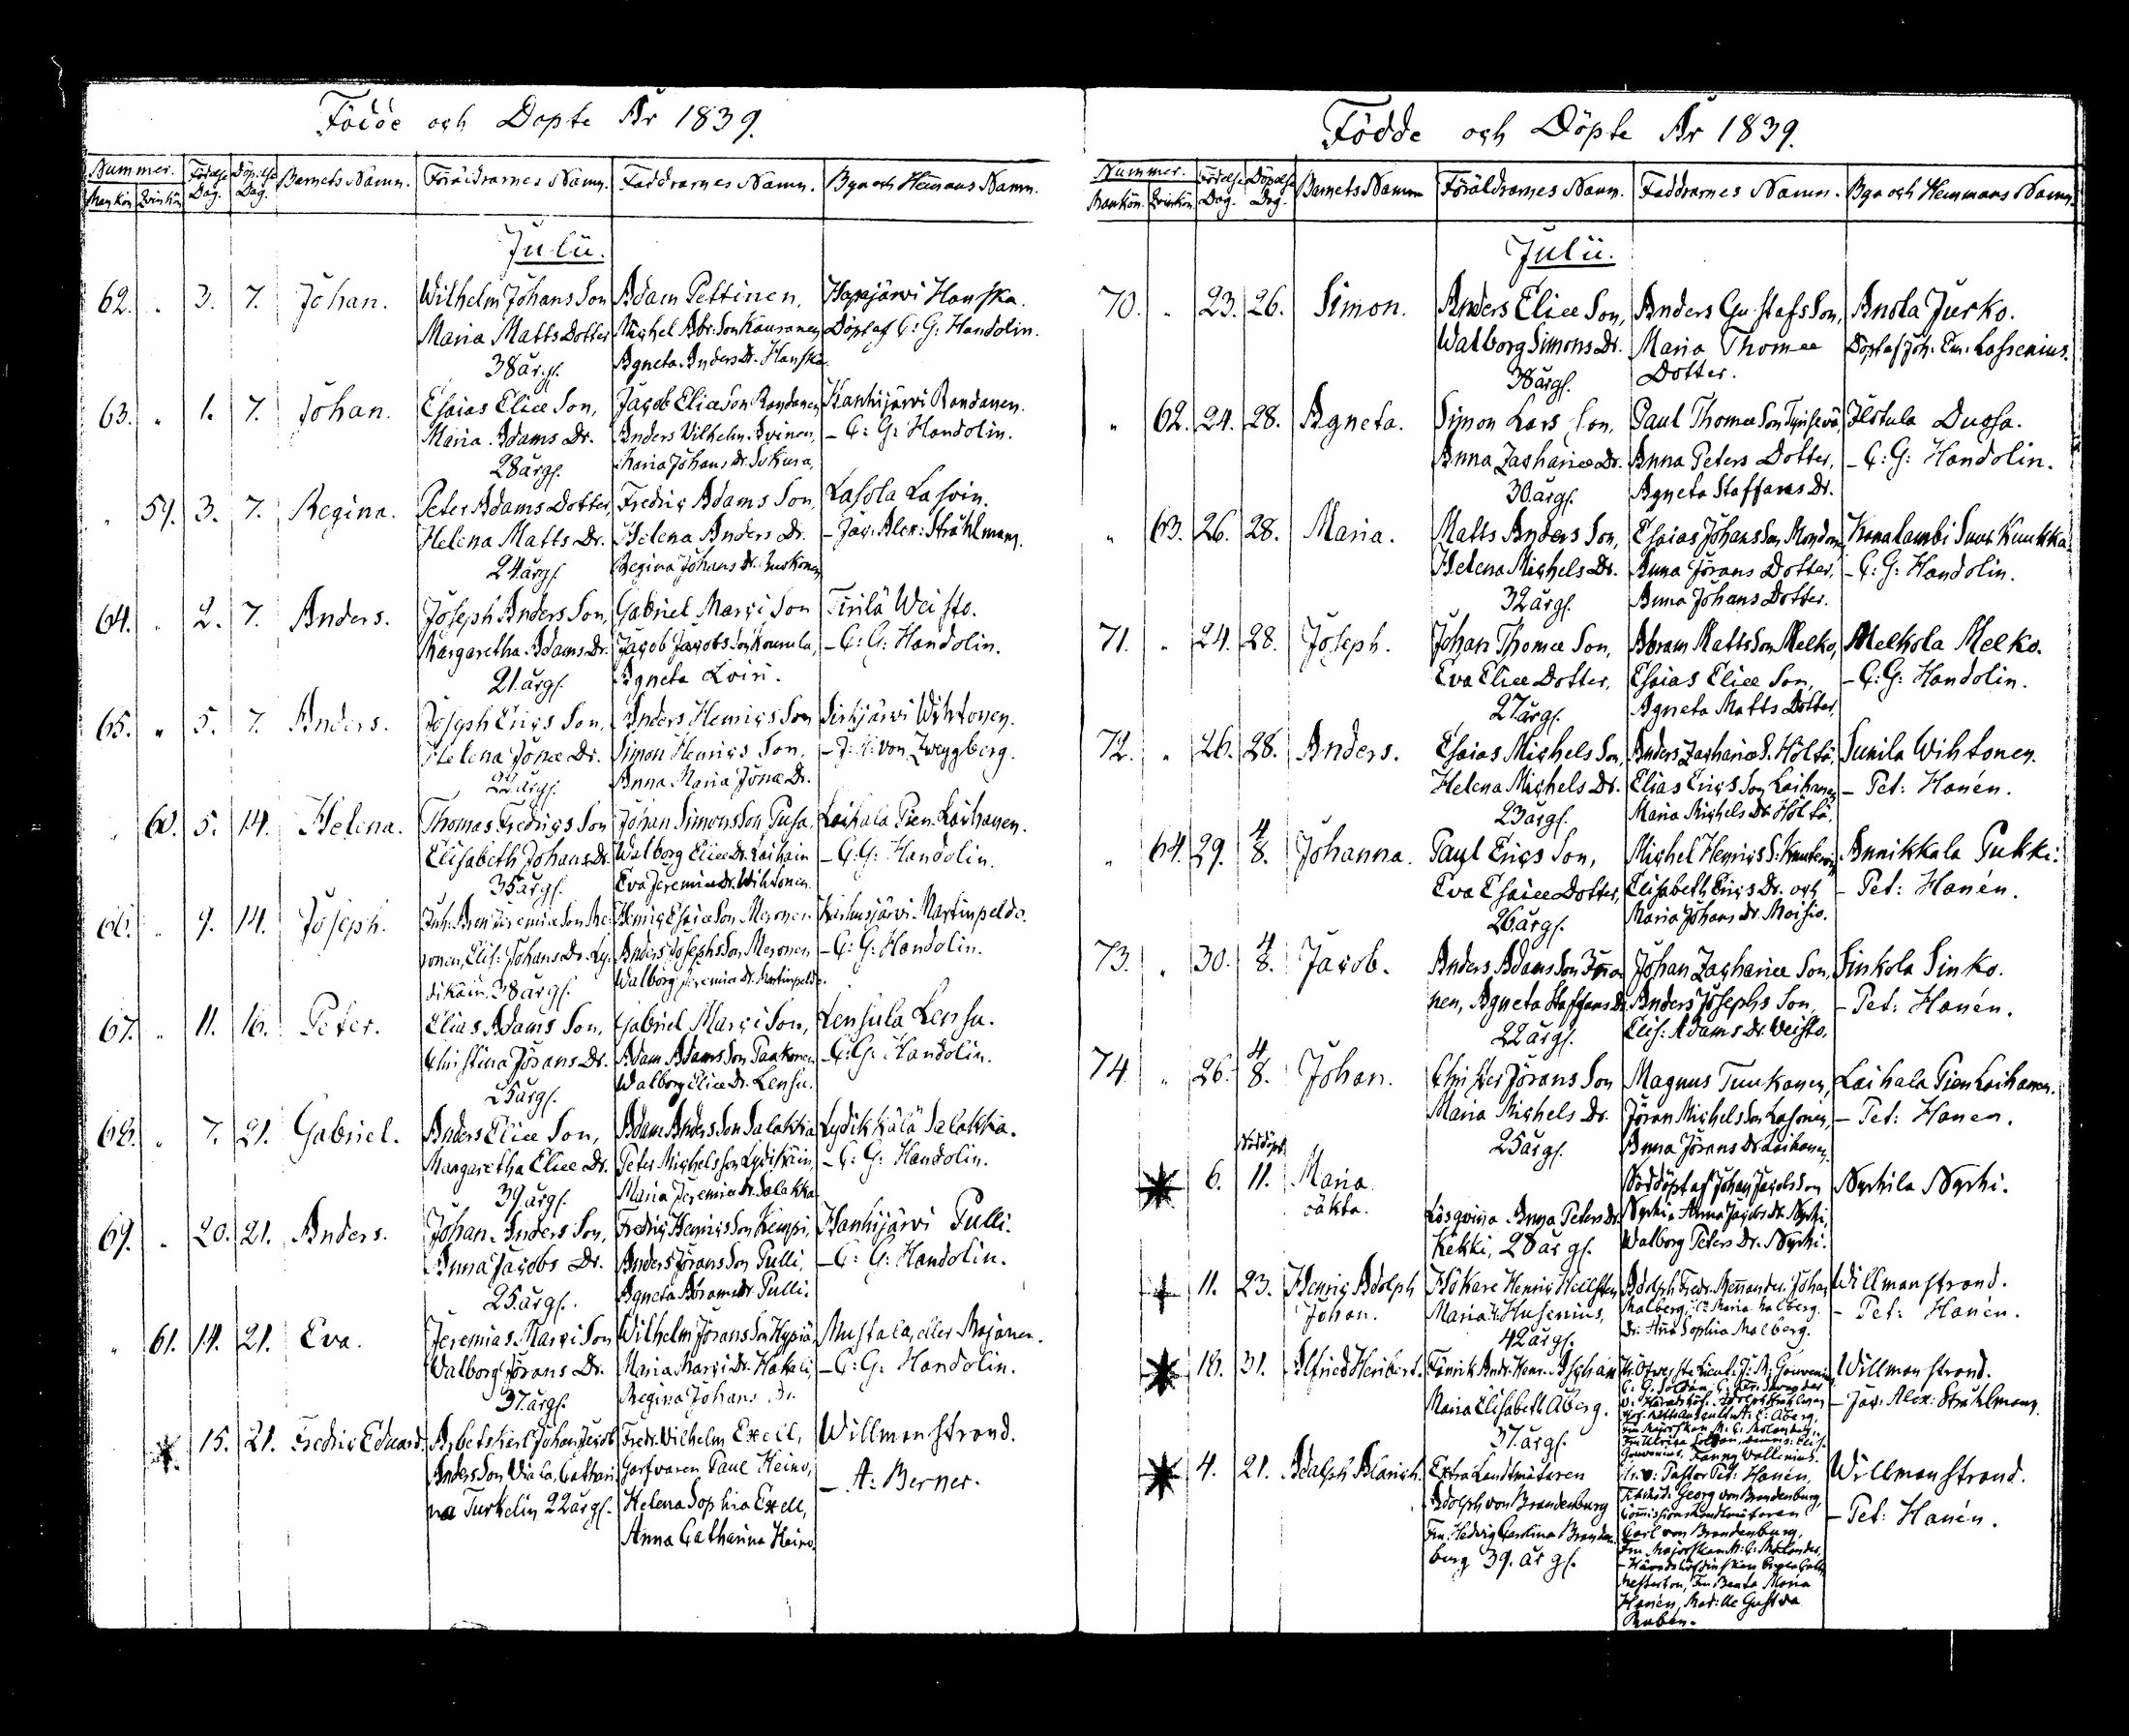 Födde och Döpte År 1839.
Nummer. Födelse Dag. Döpelse Dag. Barnets Namn. Föräldrarnes Namn. Faddrarnes Namn. Bya och Hemmans Namn.
Mankön Qvinkön
Julii.
62. " 3. 7. Johan. Wilhelm Johans Son Adam Pettinen, Hapajärvi Hanska.
Maria Matts Dotter Michel Abr: Son Kauranen Döpt af C: G: Handolin.
38 år gl. Agneta Anders Dr. Hanska.
63. " 1. 7. Johan. Esaias Eliæ Son, Jacob Eliæ Son Rondanen Kanhijärvi Rondanen.
Maria Adams Dr. Anders Vilhelm Avinen, – C: G: Handolin.
28 år gl. Maria Johans Dr. Sukura,
" 59. 3. 7. Regina. Peter Adams Dotter, Fredric Adams Son, Lasola Lasoin.
Helena Matts Dr. Helena Anders Dr. – Jac: Alex: Stråhlmann.
24 år gl. Regina Johans Dr.
64. " 2. 7. Anders. Joseph Anders Son, Gabriel Marci Son Tirilä Weisto.
Margaretha Adams Dr. Jacob Jacobs Son Kounula, – C: G: Handolin.
21 år gl. Agneta Loiri.
65. " 5. 7. Anders. Joseph Erics Son, Anders Henrics Son Sirkjärvi Wihtonen.
Helena Jonæ Dr. Simon Henrics Son, – J: H: von Zweygberg.
22 år gl. Anna Maria Jonæ Dr.
" 60. 5. 14. Helena. Thomas Fredrics Son Johan Simons Son Pusa, Laihala Pien Laihanen.
Elisabeth Johans Dr. Walborg Eliæ Dr. Laihain – C: G: Handolin.
35 år gl. Eva Jeremiæ Dr. Wihtonen.
66. " 9. 14. Joseph. Jeremiæ Son Me- Henric Esaiæ Son Meronen Karhusjärvi Martinpeldo.
ronen, Elis: Johans Dr. Ly- Anders Josephs Son Meronen – C: G: Handolin.
dikäin. 38 år gl. Walborg Jeremiæ Dr. Martinpeldo.
67. " 11. 16. Peter. Elias Adams Son, Gabriel Marci Son, Lensula Lensu.
Christina Jörans Dr. Adam Adams Son Paakonen – C: G: Handolin.
25 år gl. Walborg Eliæ Dr. Lensu.
68. " 7. 21. Gabriel. Anders Eliæ Son, Adam Anders Son Salakka Lydikkälä Salakka.
Margaretha Eliæ Dr. Peter Michels Son Lydikäin, – C: G: Handolin.
39 år gl. Maria Jeremiæ Dr. Salakka
69. " 20. 21. Anders. Johan Anders Son, Fredric Henrics Son Kemppi, Hanhijärvi Pulli.
Anna Jacobs Dr. Anders Jörans Son Pulli, – C: G: Handolin.
25 år gl. Agneta Abrams Dr. Pulli.
" 61. 14. 21. Eva. Jeremias Marci Son Wilhelm Jörans Son Hypiä, Mustala, eller Mojonen.
Walborg Jörans Dr. Maria Marci Dr. Hakali, – C: G: Handolin.
37 år gl. Regina Johans Dr.
15. 21. Fredric Eduard. Arbetskarl Johan Jacob Fredr. Vilhelm Exell, Willmanstrand.
Anders Son Viala, Cathari- Garfvaren Paul Heino, – A: Berner.
na Turkelin 22 år gl. Helena Sophia Exell,
Anna Catharina Heino.
Födde och Döpte År 1839.
Nummer. Födelse Dag. Döpelse Dag. Barnets Namn Föräldrarnes Namn. Faddrarnes Namn. Bya och Hemmans Namn.
Mankön. Qvinkön
Julii.
70. " 23. 26. Simon. Anders Eliæ Son, Anders Gustafs Son, Anola Jurko.
Walborg Simons Dr. Maria Thomæ Döpt af Joh: Em: Lassenius.
38 år gl. Dotter.
" 62. 24. 28. Agneta. Simon Lars Son, Paul Thomæ Son Ilstula Duosa.
Anna Zachariæ Dr. Anna Peters Dotter, – C: G: Handolin.
30 år gl. Agneta Staffans Dr.
" 63. 26. 28. Maria. Matts Anders Son, Esaias Johans Son Kuukka.
Helena Michels Dr. Anna Jörans Dotter, – C: G: Handolin.
32 år gl. Anna Johans Dotter.
71. " 24. 28. Joseph. Johan Thomæ Son, Abram Matts Son Melko, Melkola Melko.
Eva Eliæ Dotter, Esaias Eliæ Son, – C: G: Handolin.
27 år gl. Agneta Matts Dotter,
72. " 26. 28. Anders. Esaias Michels Son, Anders Zachariæ S. Höltä, Sunila Wihtonen.
Helena Michels Dr. Elias Erics Son Laihanen – Pet: Hanén.
23 år gl. Maria Michels Dr. Höltä.
" 64. 29. 4/8. Johanna. Paul Erics Son, Michel Henrics S. Annikkala Pukki.
Eva Esaiæ Dotter, Elisabeth Erics Dr. och – Pet: Hanén.
26 år gl. Maria Johans Dr. Moisio.
73. " 30. 4/8. Jacob. Anders Adams Son Johan Zachariæ Son, Sinkola Sinko.
nen, Agneta Staffans Dr. Anders Josephs Son, – Pet: Hanén.
22 år gl. Elis: Adams Dr. Veisto,
74. " 26. 4/8. Johan. Christer Jörans Son Magnus Tuukanen, Laihala Pien Laihanen.
Maria Michels Dr. Jöran Michels Son Lasonen, – Pet: Hanen.
25 år gl. Anna Jörans Dr. Laihanen.
Nöddöpt
6. 11. Maria Nöddöpt af Johan Jacobs Son Nyrhila Nyrhi.
oäkta. Lösqvinna Anna Peters Dr. Nyrhi, Anna Jacobs Dr. Nyrhi,
Kekki, 28 år gl. Walborg Peters Dr. Nyrhi.
11. 23. Henric Adolph Hökare Henric Hellsten Adolph Fredr. Johan Willmanstrand.
Johan. Maria Husenius, Malberg, Maria Malberg. – Pet: Hanén.
42 år gl. Dr: Anna Sophia Malberg.
18. 31. Alfried Heribert. Fänrik Andr. Henr. Willmanstrand.
Maria Elisabeth Åberg. – Jac: Alex: Stråhlmann.
37 år gl. Fanny Wallenius.
4. 21. Adolph Alarich. Extra Landtmätaren Pastor Pet: Hanén, Willmanstrand.
Adolph von Brandenburg Georg von Brandenburg, – Pet: Hanén.
Fru Hedvig Carolina Branden- Commissions Landtmätaren
burg 39. år gl. Carl von Brandenburg,
Fru Majorskan M: C: Molander,
Fru Beata Maria
Hanén, Mad:lle Gustava
Rubén.